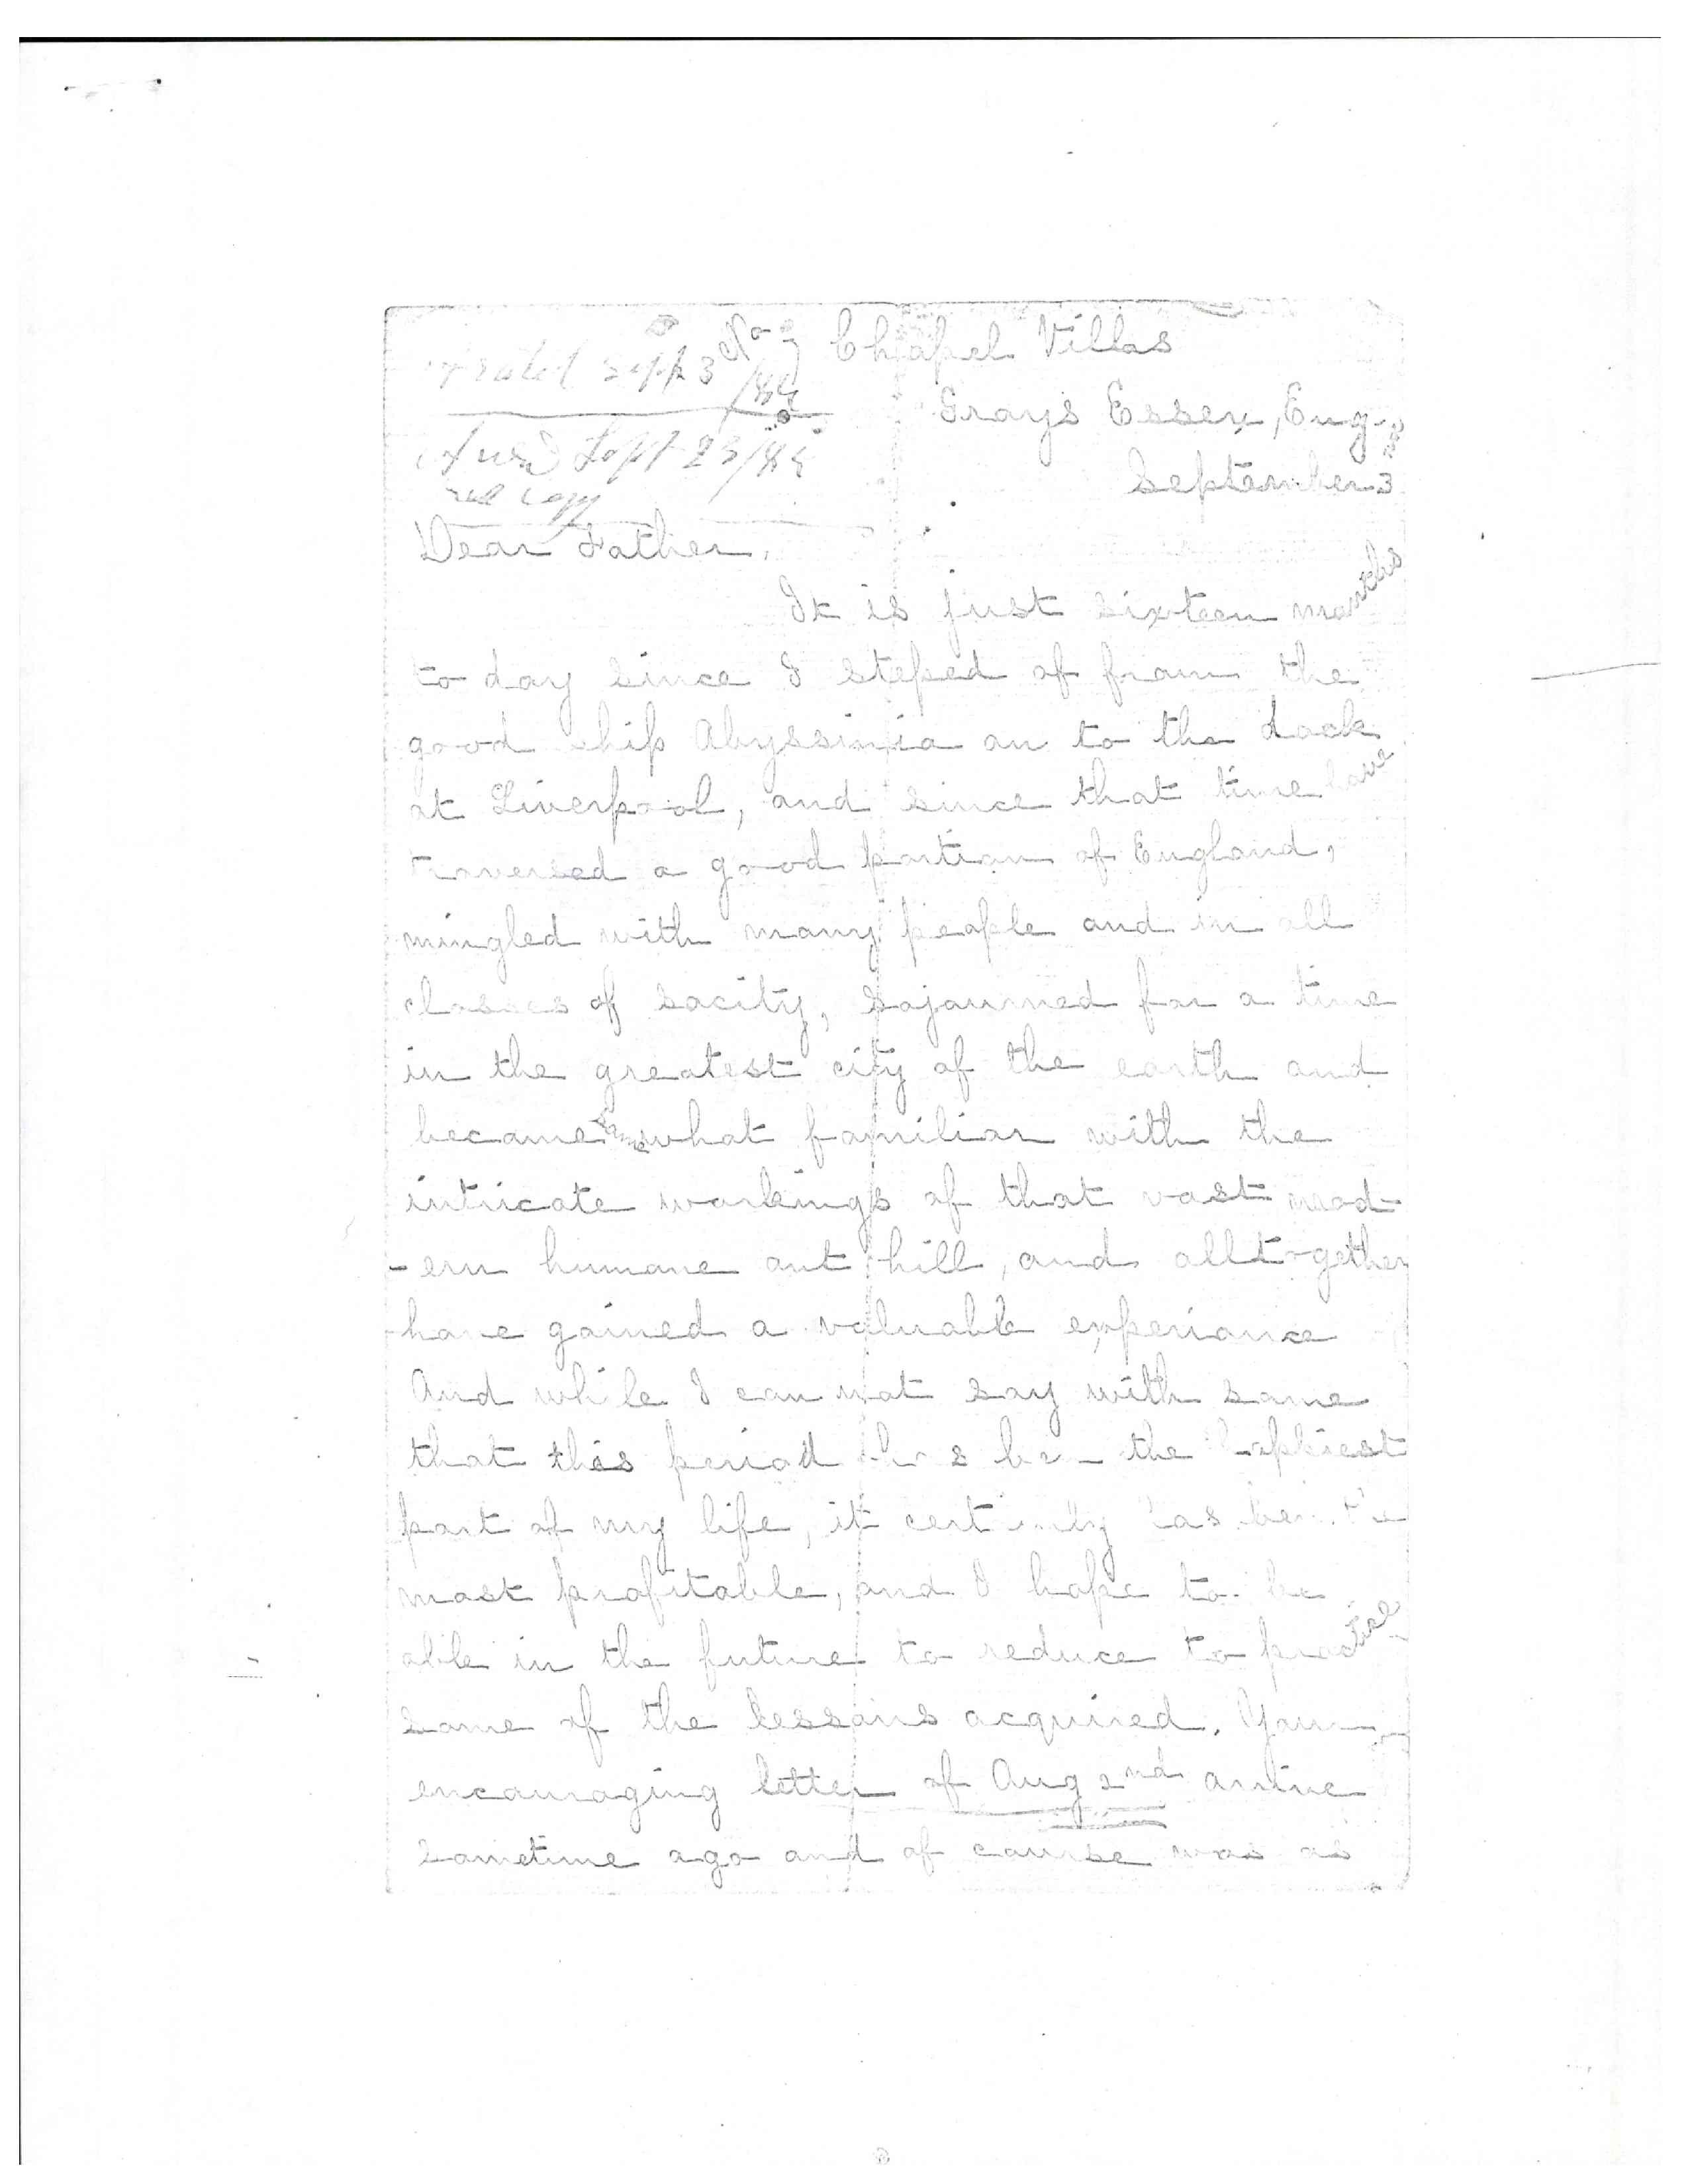 No Chapel Villas
Sept 3 /84
Grays Essex, Eng.
Sept 23/84
September 3
copy
Dear Father,
It is just sixteen months
to day since I steped of from the
good ship Abyssinia on to the dock
at Liverpool, and since that time have
traversed a good portion of England,
mingled with many people and in all
classes of socity, sojourned for a time
in the greatest city of the earth and
became somewhat familiar with the
intricate workings of that vast mod-
-ern humane ant hill, and alltogether
have gained a valuable experiance
And while I can not say with some
that this period has ben the happiest
part of my life, it certinly has ben the
most profitable, and I hope to be
able in the future to reduce to practise
some of the lessons acquired. Your
encouraging letter of Aug 2nd arrive
sometime ago and of course was as